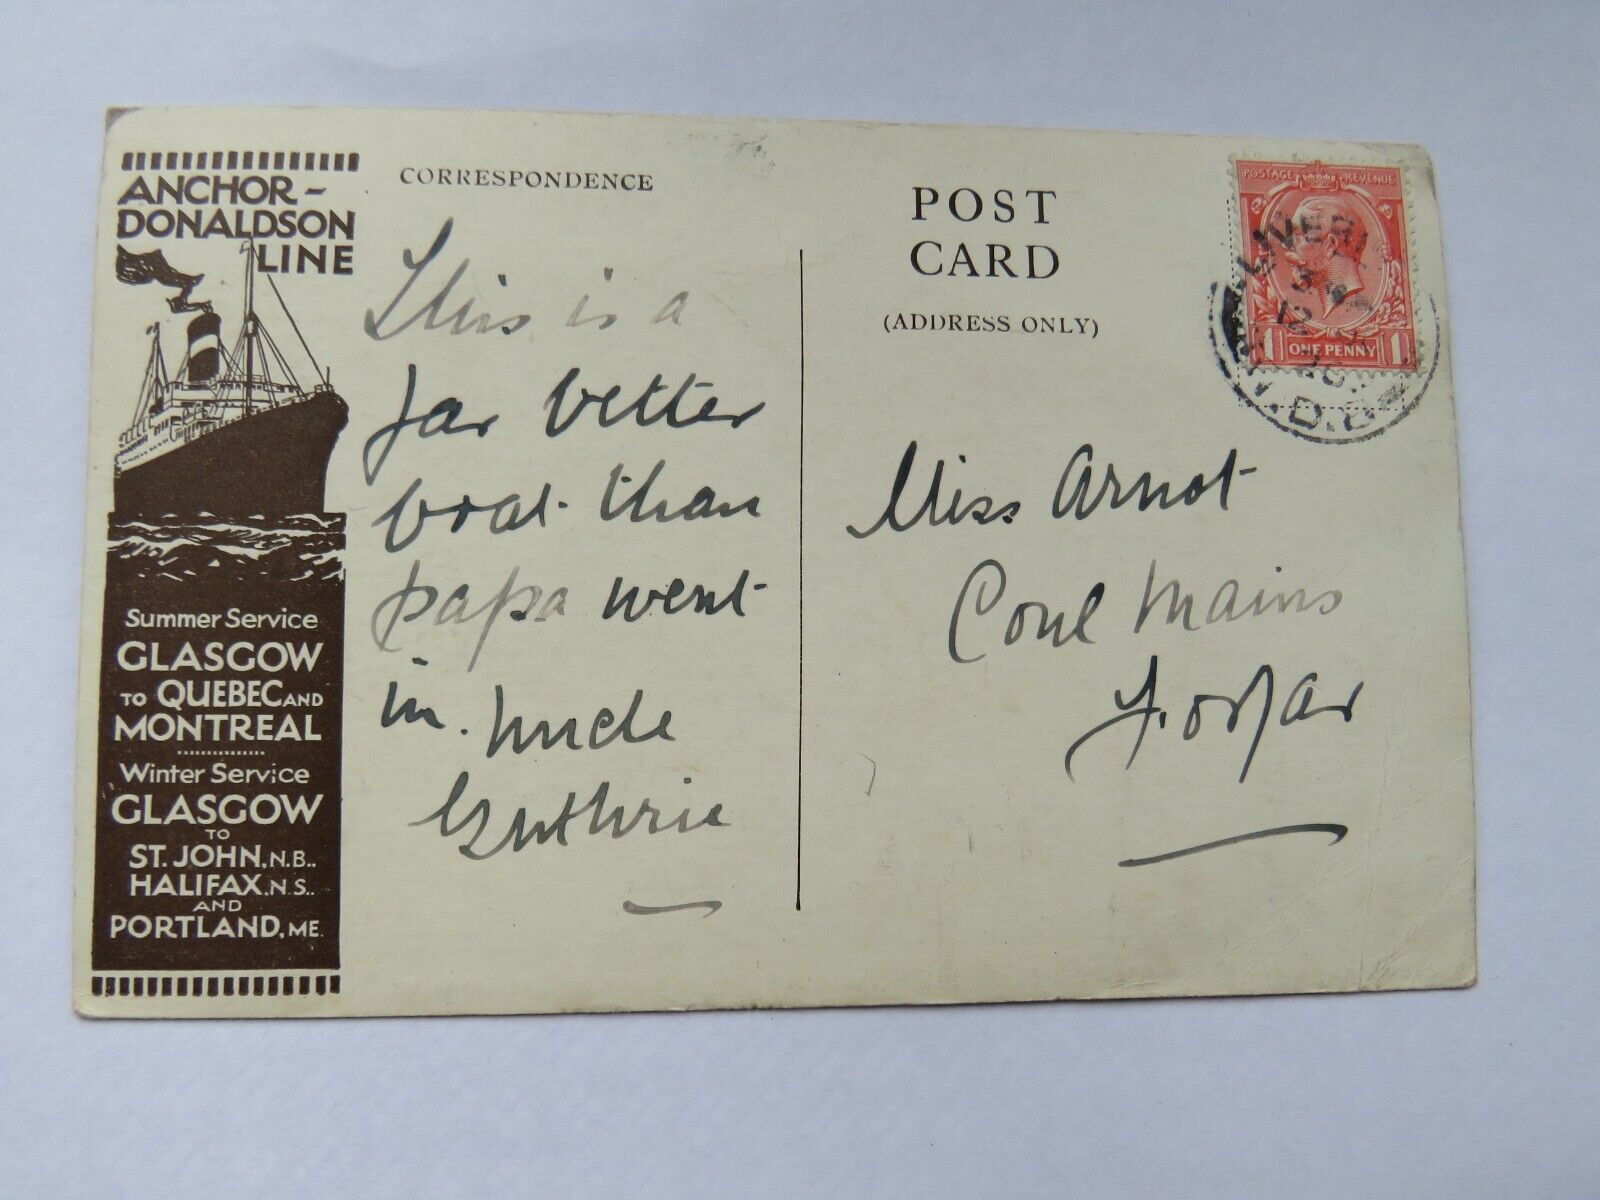 ANCHOR-
DONALDSON
LINE
Summer Service
GLASGOW
TO QUEBEC AND
MONTREAL
Winter Service
GLASGOW
TO
ST. JOHN, N.B.,
HALIFAX, N.S.,
AND
PORTLAND, ME.
CORRESPONDENCE
This is a
far better
boat than
papa went
in. Uncle
Guthrie
POST
CARD
(ADDRESS ONLY)
POSTAGE REVENUE
1 ONE PENNY 1
LIVER
12
Miss Arnot
Mains
Forfar